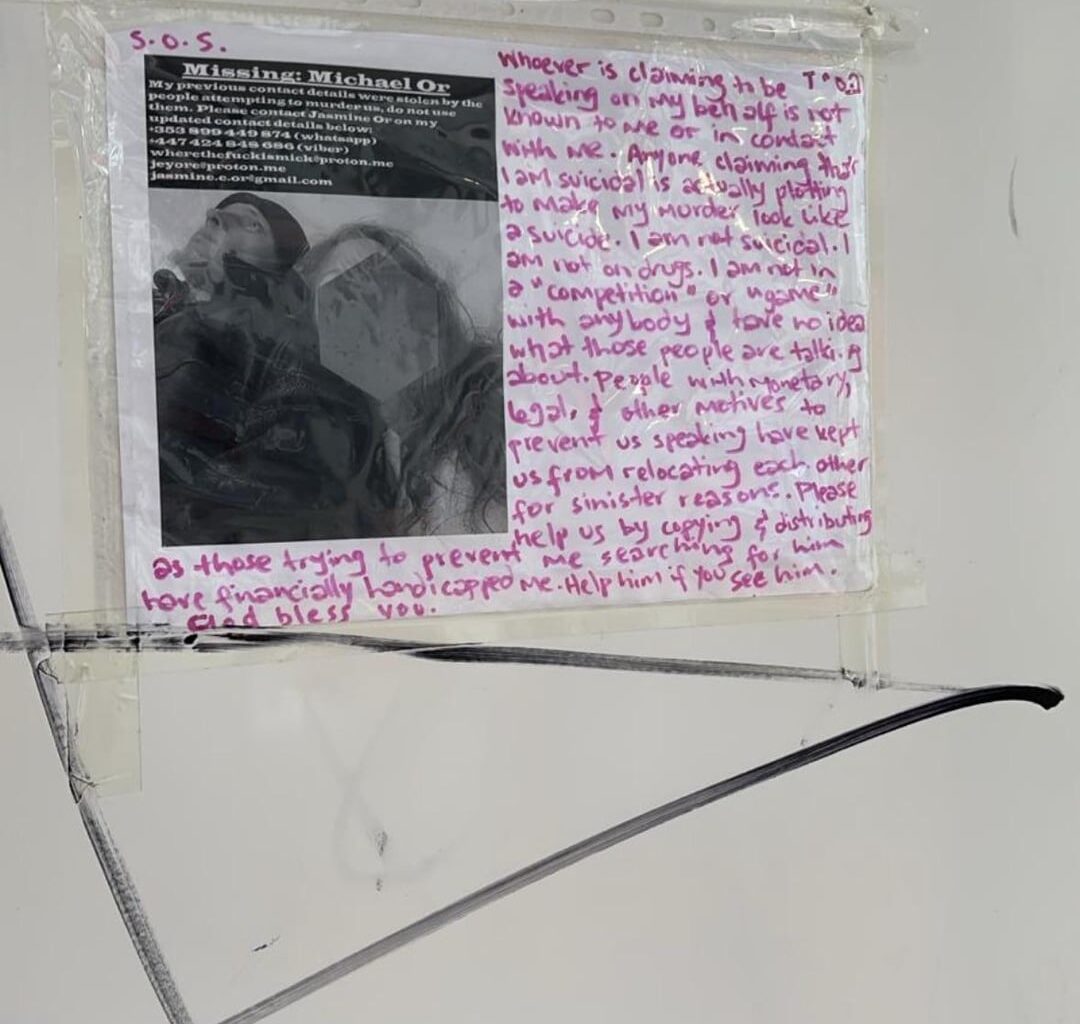 S.O.S.
Missing: Michael Or
My previous contact details were stolen by the
people attempting to murder us, do not use
them. Please contact Jasmine Or on my
updated contact details below:
+353 899 449 874 (whatsapp)
+447 424 848 686 (viber)
wherethefuckismick@proton.me
jeyore@proton.me
jasmine.e.or@gmail.com
Whoever is claiming to be
speaking on my behalf is not
known to me or in contact
with me. Anyone claiming that
I am suicidal is actually plotting
to make my murder look like
a suicide. I am not suicidal. I
am not on drugs. I am not in
a "competition" or "game"
with anybody & have no idea
what those people are talking
about. People with monetary,
legal, & other motives to
prevent us speaking have kept
us from relocating each other
for sinister reasons. Please
help us by copying & distributing
as those trying to prevent me searching for him
have financially handicapped me. Help him if you see him.
God bless you.